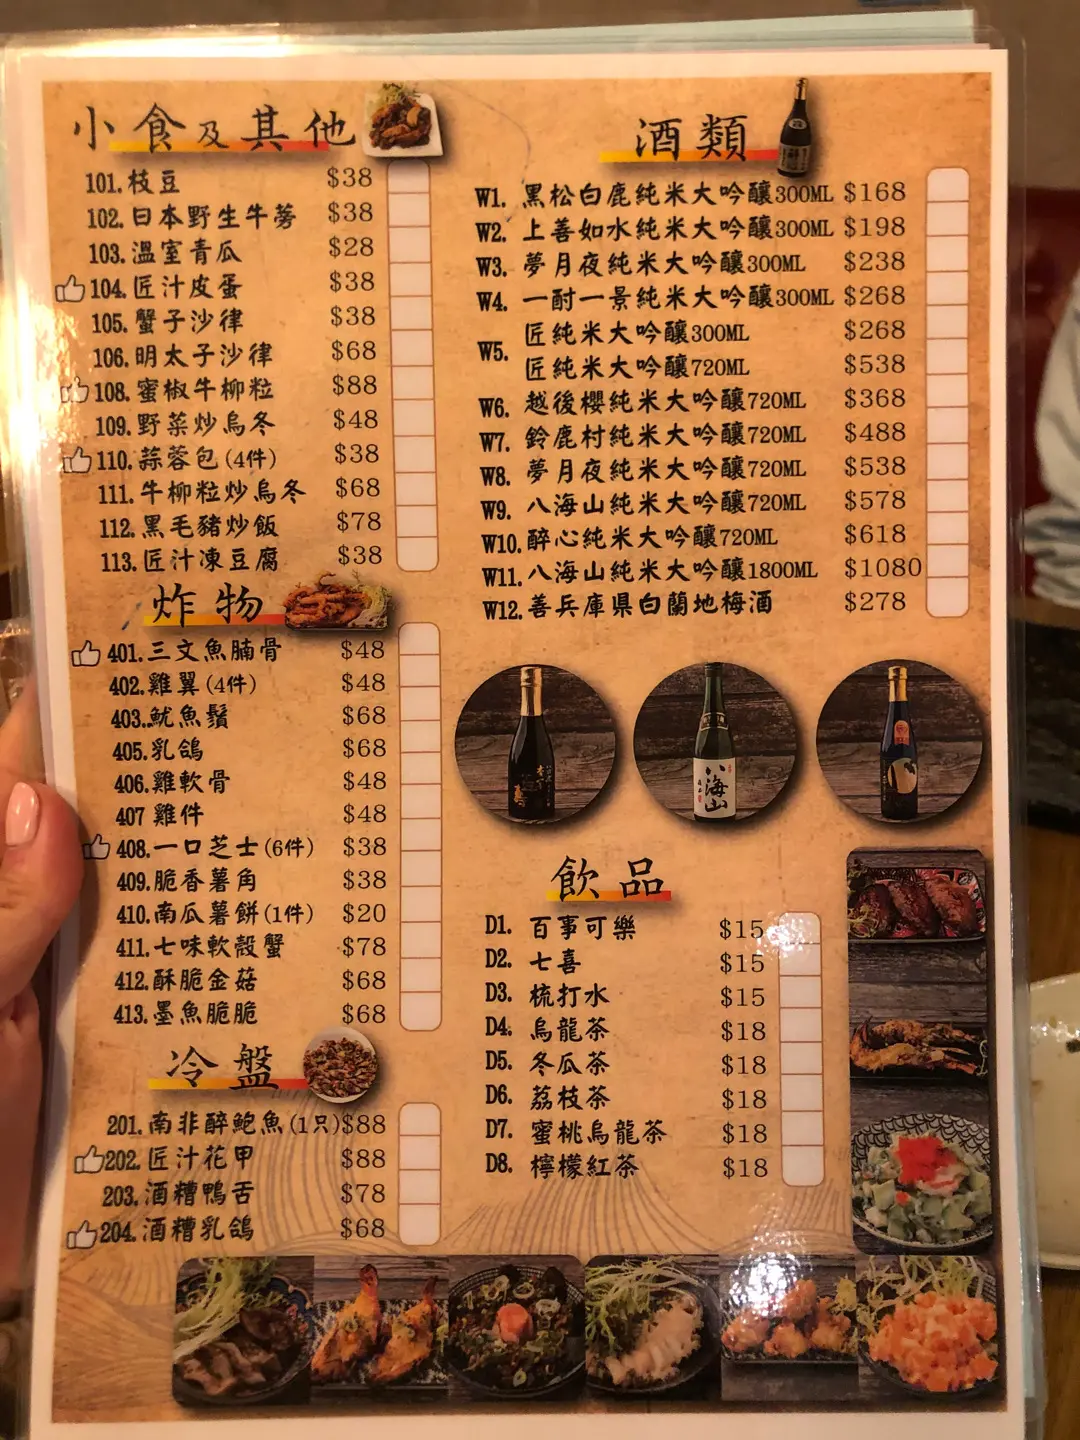 小食及其他
101.枝豆 $38
102.日本野生牛蒡 $38
103.溫室青瓜 $28
104.匠汁皮蛋 $38
105.蟹子沙律 $38
106.明太子沙律 $68
108.蜜椒牛柳粒 $88
109.野菜炒烏冬 $48
110.蒜蓉包(4件) $38
111.牛柳粒炒烏冬 $68
112.黑毛豬炒飯 $78
113.匠汁凍豆腐 $38
炸物
401.三文魚腩骨 $48
402.雞翼(4件) $48
403..魷魚鬚 $68
405.乳鴿 $68
406.雞軟骨 $48
407 雞件 $48
408.一口芝士(6件) $38
409.脆香薯角 $38
410.南瓜薯餅(1件) $20
411.七味軟殼蟹 $78
412.酥脆金菇 $68
413.墨魚脆脆 $68
冷盤
201.南非醉鮑魚(1只)$88
202.匠汁花甲 $88
203.酒糟鴨舌 $78
204.酒糟乳鴿 $68
酒類
W1. 黑松白鹿純米大吟釀300ML $168
W2. 上善如水純米大吟釀300ML $198
W3. 夢月夜純米大吟釀300ML $238
W4. 一酎一景純米大吟釀300ML $268
W5. 匠純米大吟釀300ML $268
匠純米大吟釀720ML $538
W6. 越後櫻純米大吟釀720ML $368
W7. 鈴鹿村純米大吟釀720ML $488
W8. 夢月夜純米大吟釀720ML $538
W9. 八海山純米大吟釀720ML $578
W10.醉心純米大吟釀720ML $618
W11.八海山純米大吟釀1800ML $1080
W12.善兵庫県白蘭地梅酒 $278
八海山
飲品
D1. 百事可樂 $15
D2. 七喜 $15
D3. 梳打水 $15
D4. 烏龍茶 $18
D5. 冬瓜茶 $18
D6. 荔枝茶 $18
D7. 蜜桃烏龍茶 $18
D8. 檸檬紅茶 $18